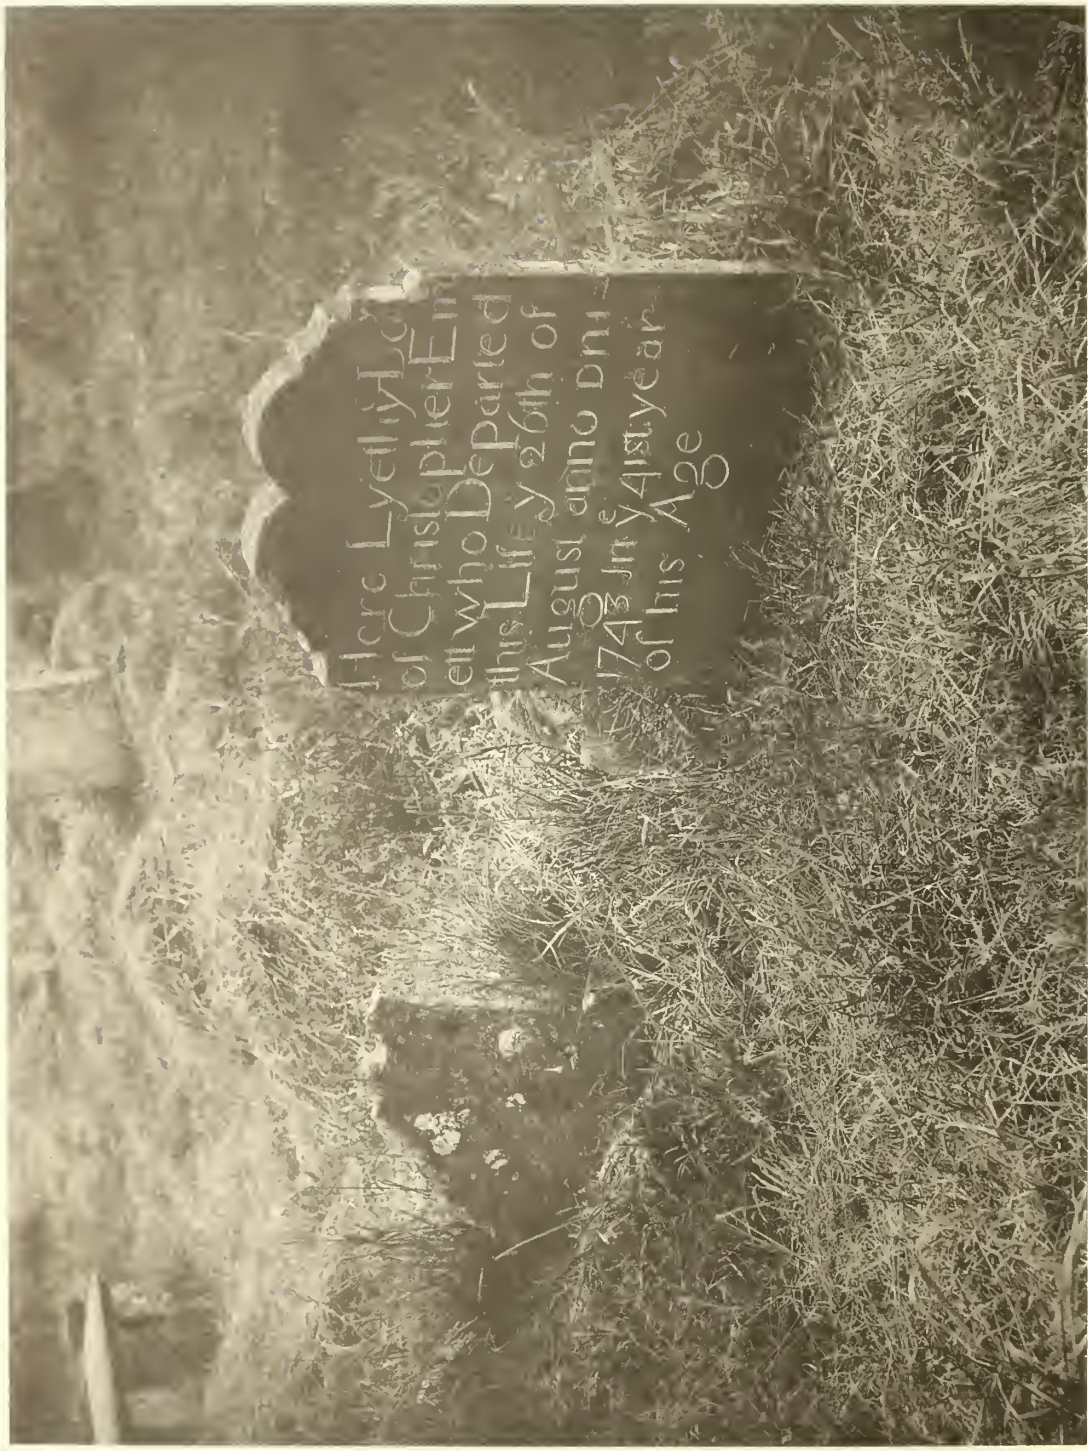 Here Lyeth y Body
of Christopher En
ell who DeParted
this Life y 26th of
August anno DNI
1743 In yᵉ 41st year
of his Age